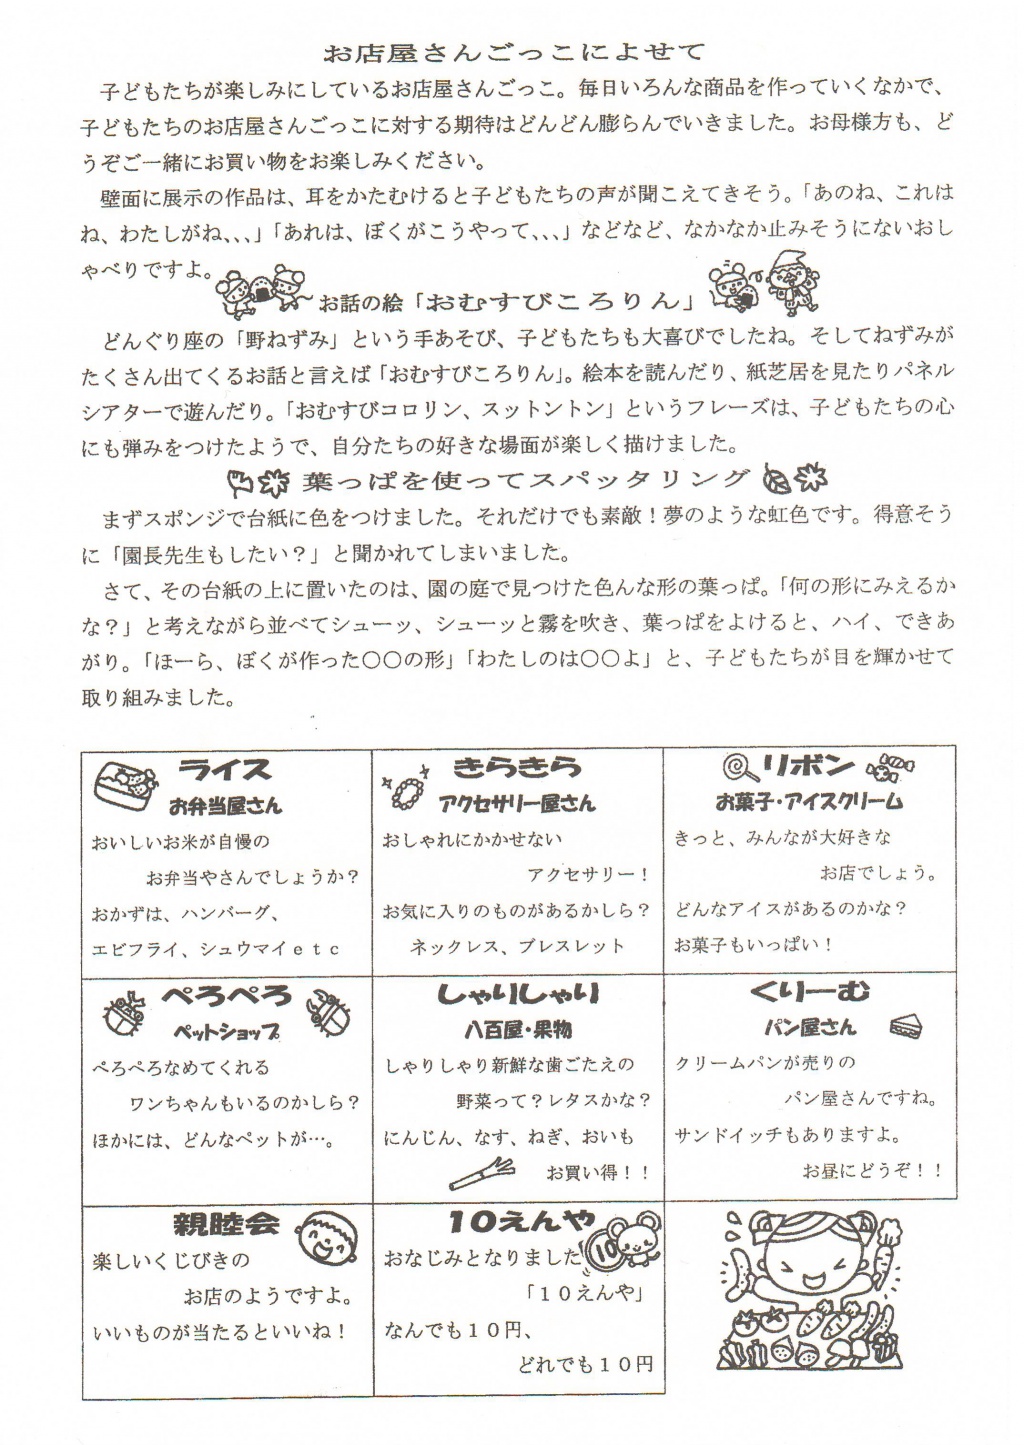 お店屋さんごっこによせて
子どもたちが楽しみにしているお店屋さんごっこ。毎日いろんな商品を作っていくなかで、
子どもたちのお店屋さんごっこに対する期待はどんどん膨らんでいきました。お母様方も、ど
うぞご一緒にお買い物をお楽しみください。
壁面に展示の作品は、耳をかたむけると子どもたちの声が聞こえてきそう。「あのね、これは
ね、わたしがね、、、」「あれは、ぼくがこうやって、、、」などなど、なかなか止みそうにないおし
ゃべりですよ。
お話の絵「おむすびころりん」
どんぐり座の「野ねずみ」という手あそび、子どもたちも大喜びでしたね。そしてねずみが
たくさん出てくるお話と言えば「おむすびころりん」。絵本を読んだり、紙芝居を見たりパネル
シアターで遊んだり。「おむすびコロリン、スットントン」というフレーズは、子どもたちの心
にも弾みをつけたようで、自分たちの好きな場面が楽しく描けました。
葉っぱを使ってスパッタリング
まずスポンジで台紙に色をつけました。それだけでも素敵！夢のような虹色です。得意そう
に「園長先生もしたい？」と聞かれてしまいました。
さて、その台紙の上に置いたのは、園の庭で見つけた色んな形の葉っぱ。「何の形にみえるか
な？」と考えながら並べてシューッ、シューッと霧を吹き、葉っぱをよけると、ハイ、できあ
がり。「ほーら、ぼくが作った〇〇の形」「わたしのは〇〇よ」と、子どもたちが目を輝かせて
取り組みました。
ライス
お弁当屋さん
おいしいお米が自慢の
お弁当やさんでしょうか？
おかずは、ハンバーグ、
エビフライ、シュウマイｅｔｃ
きらきら
アクセサリー屋さん
おしゃれにかかせない
アクセサリー！
お気に入りのものがあるかしら？
ネックレス、ブレスレット
リボン
お菓子・アイスクリーム
きっと、みんなが大好きな
お店でしょう。
どんなアイスがあるのかな？
お菓子もいっぱい！
ぺろぺろ
ペットショップ
ぺろぺろなめてくれる
ワンちゃんもいるのかしら？
ほかには、どんなペットが…。
しゃりしゃり
八百屋・果物
しゃりしゃり新鮮な歯ごたえの
野菜って？レタスかな？
にんじん、なす、ねぎ、おいも
お買い得！！
くりーむ
パン屋さん
クリームパンが売りの
パン屋さんですね。
サンドイッチもありますよ。
お昼にどうぞ！！
親睦会
楽しいくじびきの
お店のようですよ。
いいものが当たるといいね！
１０えんや
10
おなじみとなりました
「１０えんや」
なんでも１０円、
どれでも１０円